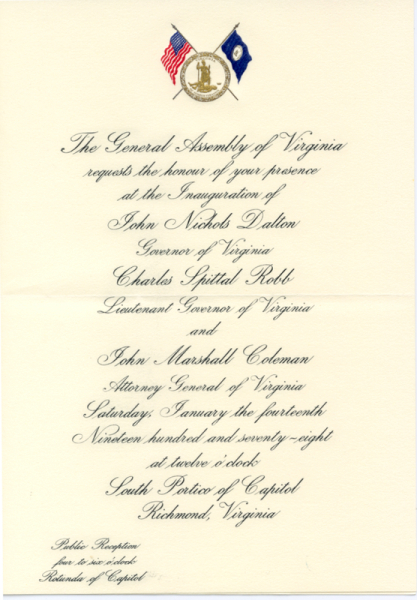 The General Assembly of Virginia
requests the honour of your presence
at the Inauguration of
John Nichols Dalton
Governor of Virginia
Charles Spittal Robb
Lieutenant Governor of Virginia
and
John Marshall Coleman
Attorney General of Virginia
Saturday, January the fourteenth
Nineteen hundred and seventy-eight
at twelve o'clock
South Portico of Capitol
Richmond, Virginia
Public Reception
four to six o'clock
Rotunda of Capitol